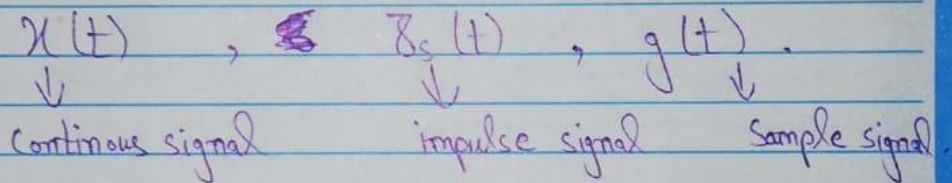 x(t) , δs(t) , g(t) .
↓ ↓ ↓
Continous signal impulse signal Sample signal.